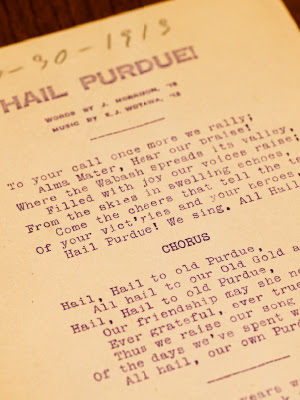 -30-1913
HAIL PURDUE!
WORDS BY J. MORRISON,
MUSIC BY E.J. WOTAWA,
To your call once more we rally;
Alma Mater, Hear our praise!
Where the Wabash spreads its valley,
Filled with joy our voices raise;
From the skies in swelling echoes,
Come the cheers that tell the
Of your vict'ries and your heroes,
Hail Purdue! We sing. All Hail
CHORUS
Hail, Hail to old Purdue,
All hail to our Old Gold
Hail, Hail to old Purdue,
Our friendship may she
Ever grateful, ever true
Thus we raise our song
Of the days we've spent
All hail, our own
years